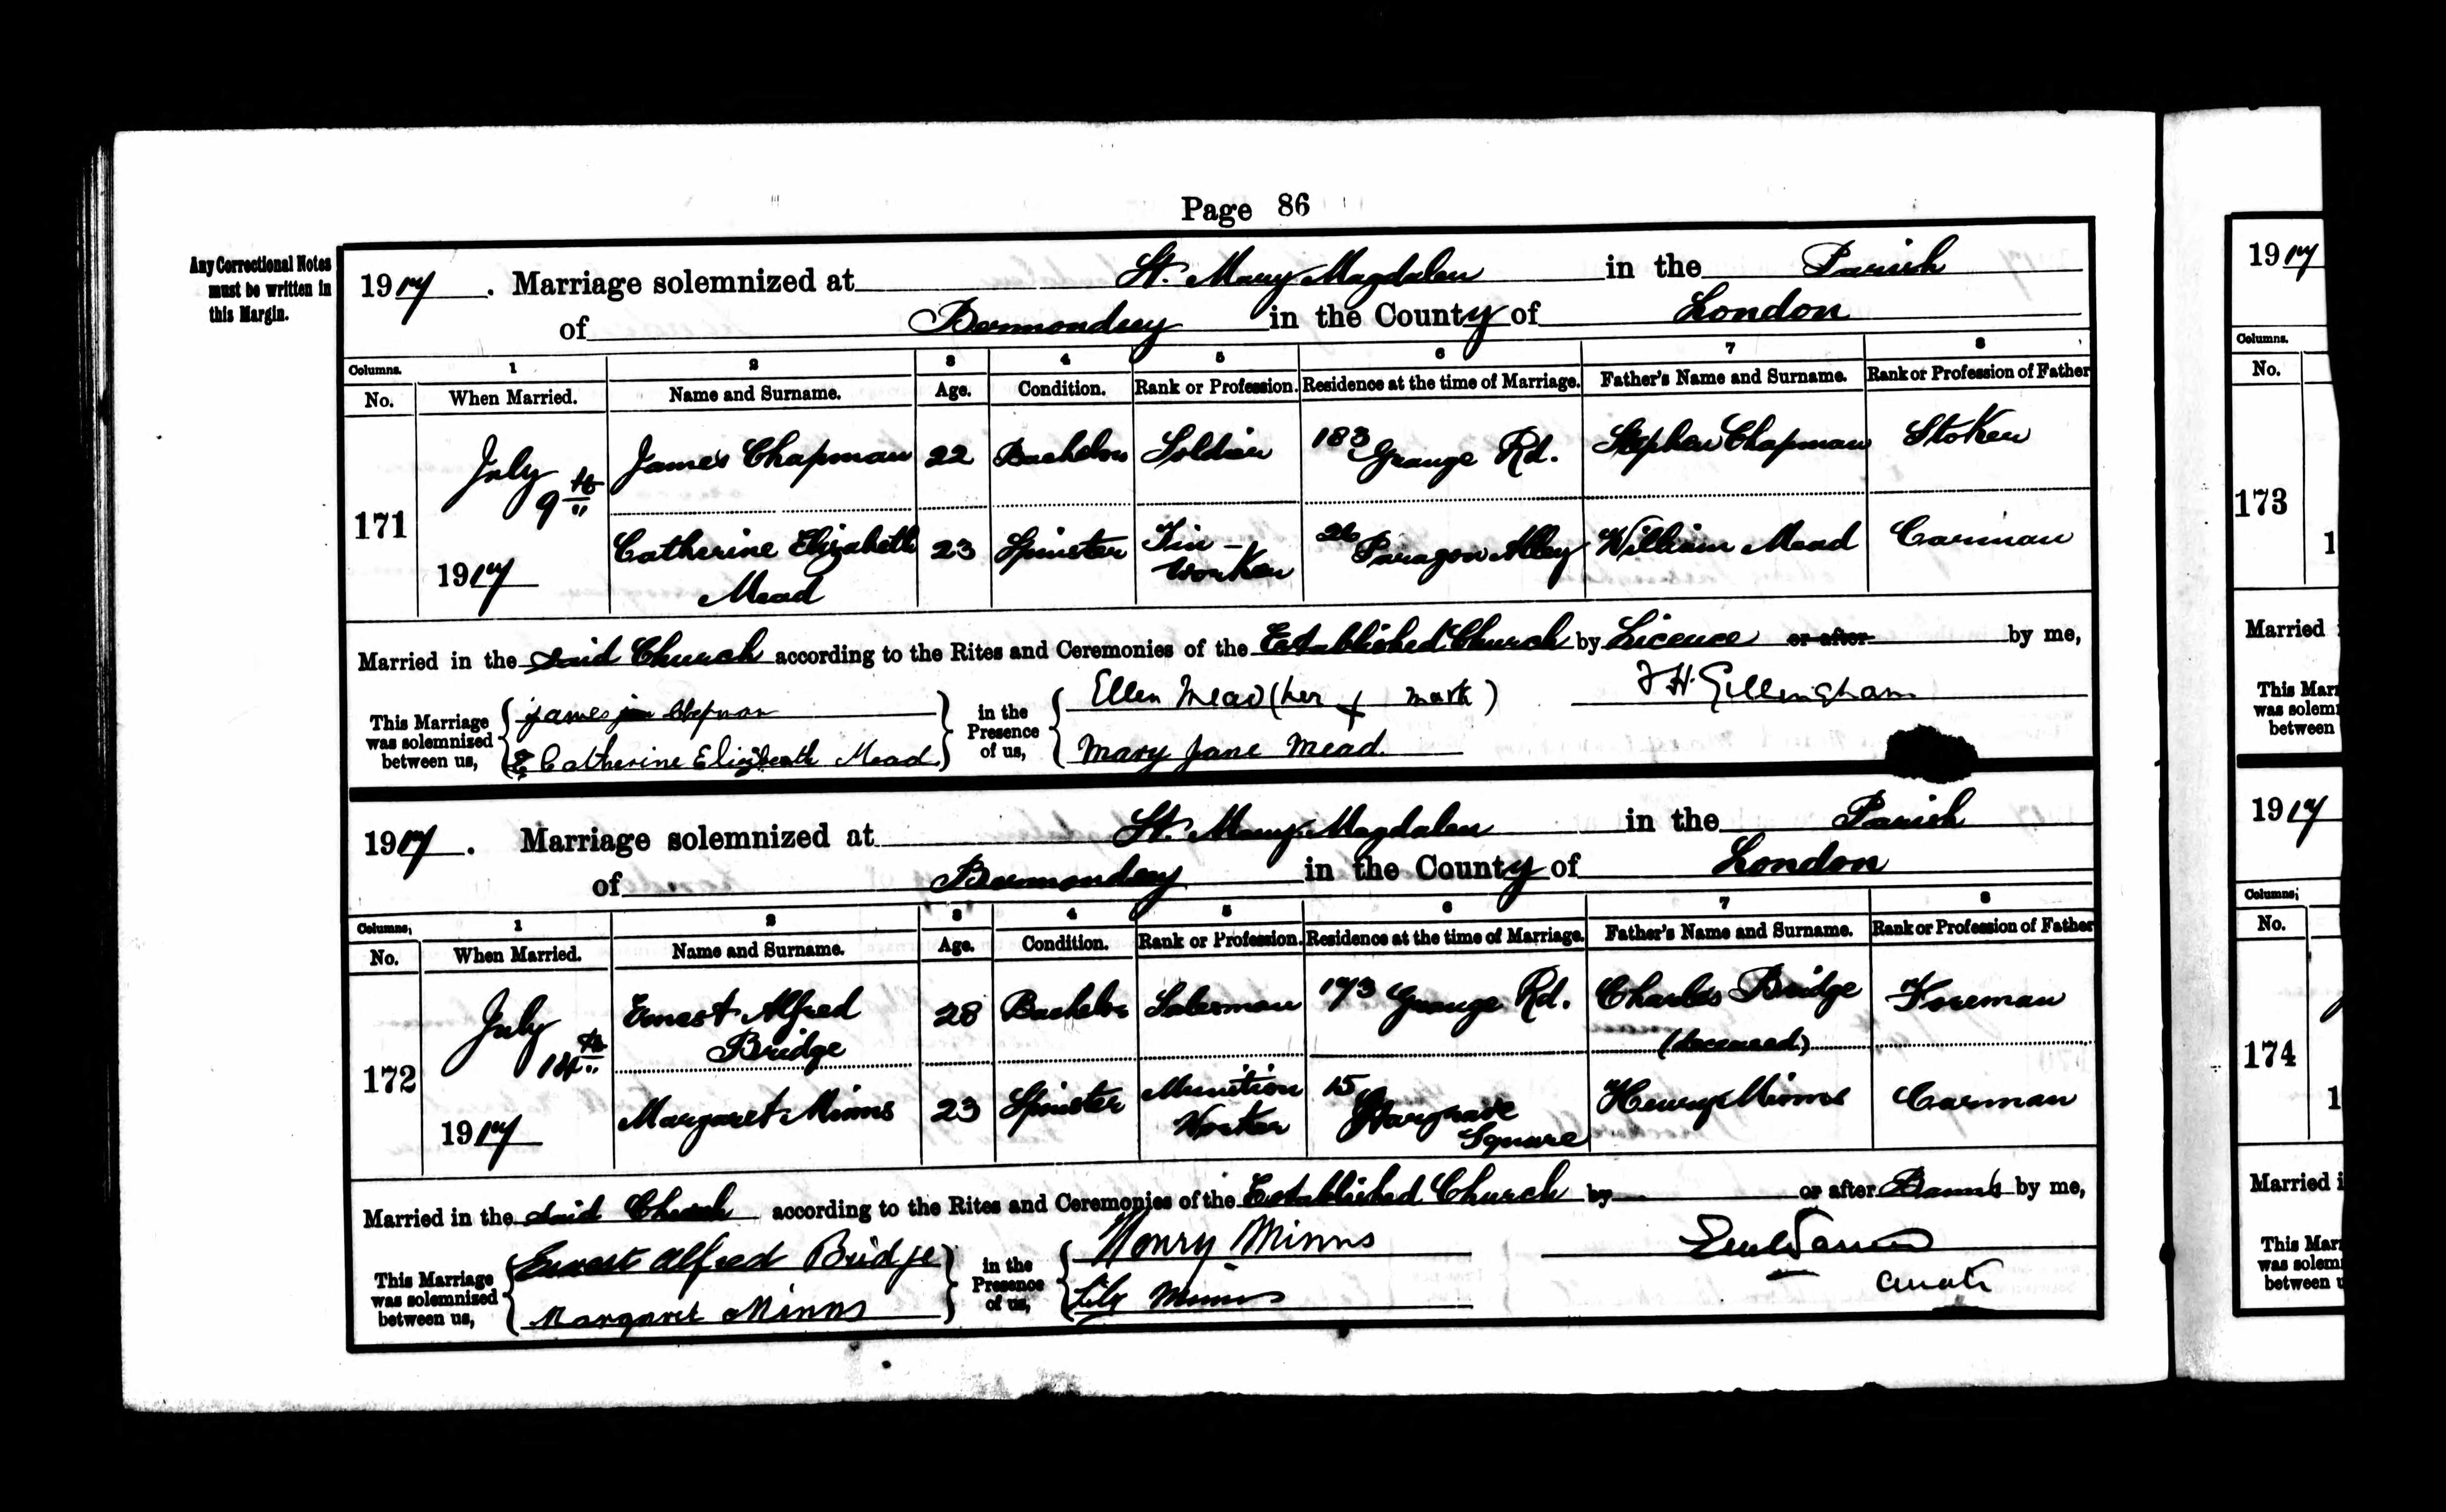 Page 86
Any Correctional Notes
must be written in
this Margin.
1917. Marriage solemnized at St. Mary Magdalen in the Parish
of Bermondsey in the County of London
Columns. 1 2 3 4 5 6 7 8
No. When Married. Name and Surname. Age. Condition. Rank or Profession. Residence at the time of Marriage. Father's Name and Surname. Rank or Profession of Father
171 July 9th 1917 James Chapman 22 Bachelor Soldier 183 Grange Rd. Stephen Chapman Stoker
Catherine Elizabeth 23 Spinster Tin- 26 Paragon Alley William Mead Carman
Mead Worker
Married in the said Church according to the Rites and Ceremonies of the Established Church by Licence or after by me,
This Marriage was solemnized between us, James Chapman in the Presence of us, Ellen Mead (her X mark) F H Gillingham
Catherine Elizabeth Mead Mary Jane Mead
1917. Marriage solemnized at St. Mary Magdalen in the Parish
of Bermondsey in the County of London
Columns, 1 2 3 4 5 6 7 8
No. When Married. Name and Surname. Age. Condition. Rank or Profession. Residence at the time of Marriage. Father's Name and Surname. Rank or Profession of Father
172 July 14th 1917 Ernest Alfred 28 Bachelor Salesman 173 Grange Rd. Charles Bridge Foreman
Bridge (deceased)
Margaret Minns 23 Spinster Munition 15 Hargrave Henry Minns Carman
Worker Square
Married in the said Church according to the Rites and Ceremonies of the Established Church by or after Banns by me,
This Marriage was solemnized between us, Ernest Alfred Bridge in the Presence of us, Henry Minns
Margaret Minns Lily Minns Curate
1917
Columns.
No.
173
1
Married
This Mar
was solem
between
1917
Columns;
No.
174
1
Married i
This Mar
was solem
between u